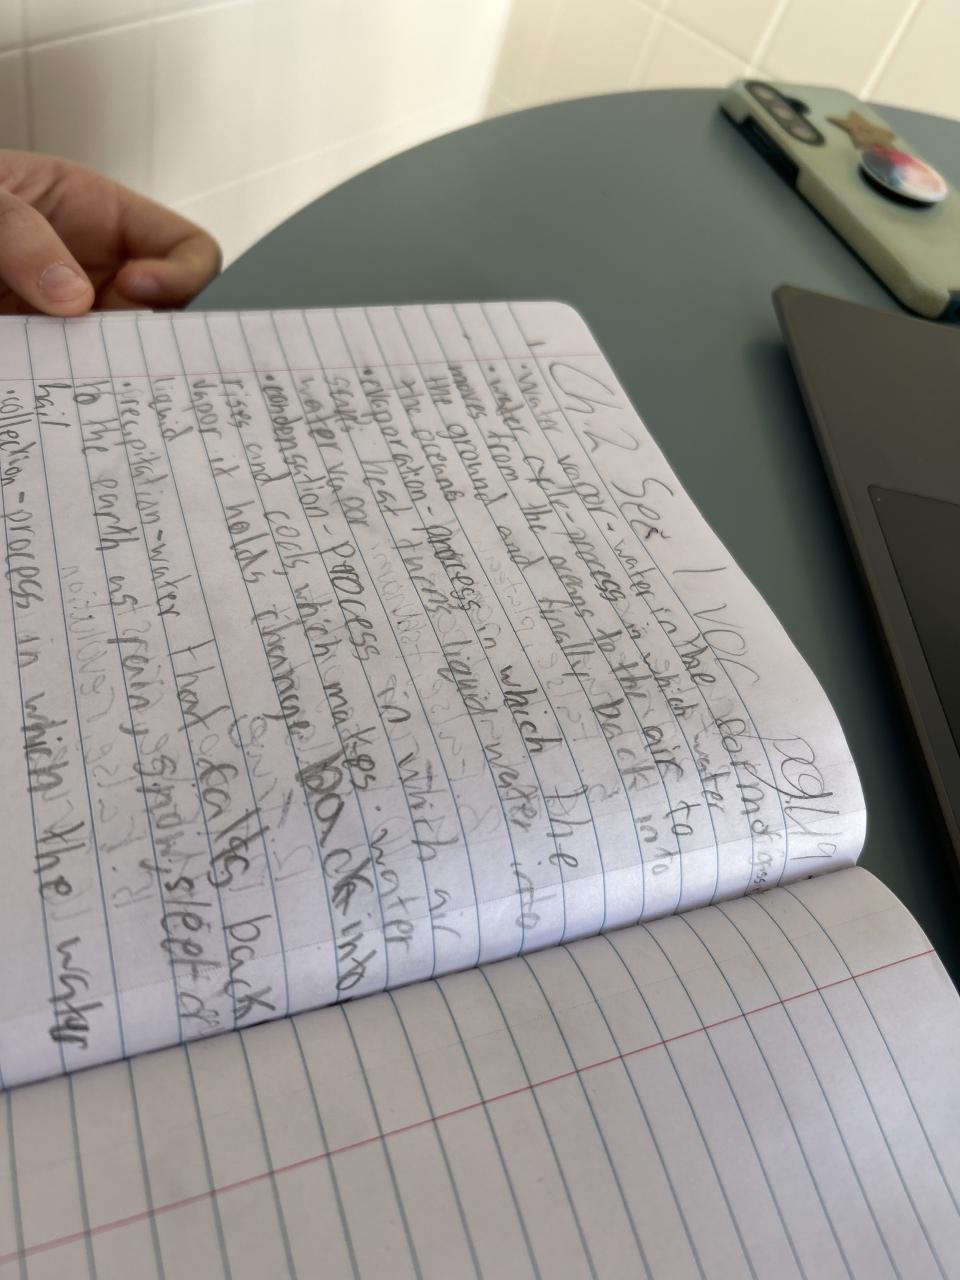 Ch. 2 Sec 1 voc pg 44
• Water vapor - water in the form of gas
• water cycle - process in which water
from the oceans to the air to
moves
the ground and finally back into
the oceans
• evaporation - process in which the
suns heat turns liquid water into
water vapor
• condensation - process in which air
rises and cools which makes water
vapor it holds change back into
liquid
• precipitation - water that falls back
to the earth as rain, snow, sleet or
hail
• collection - process in which the water